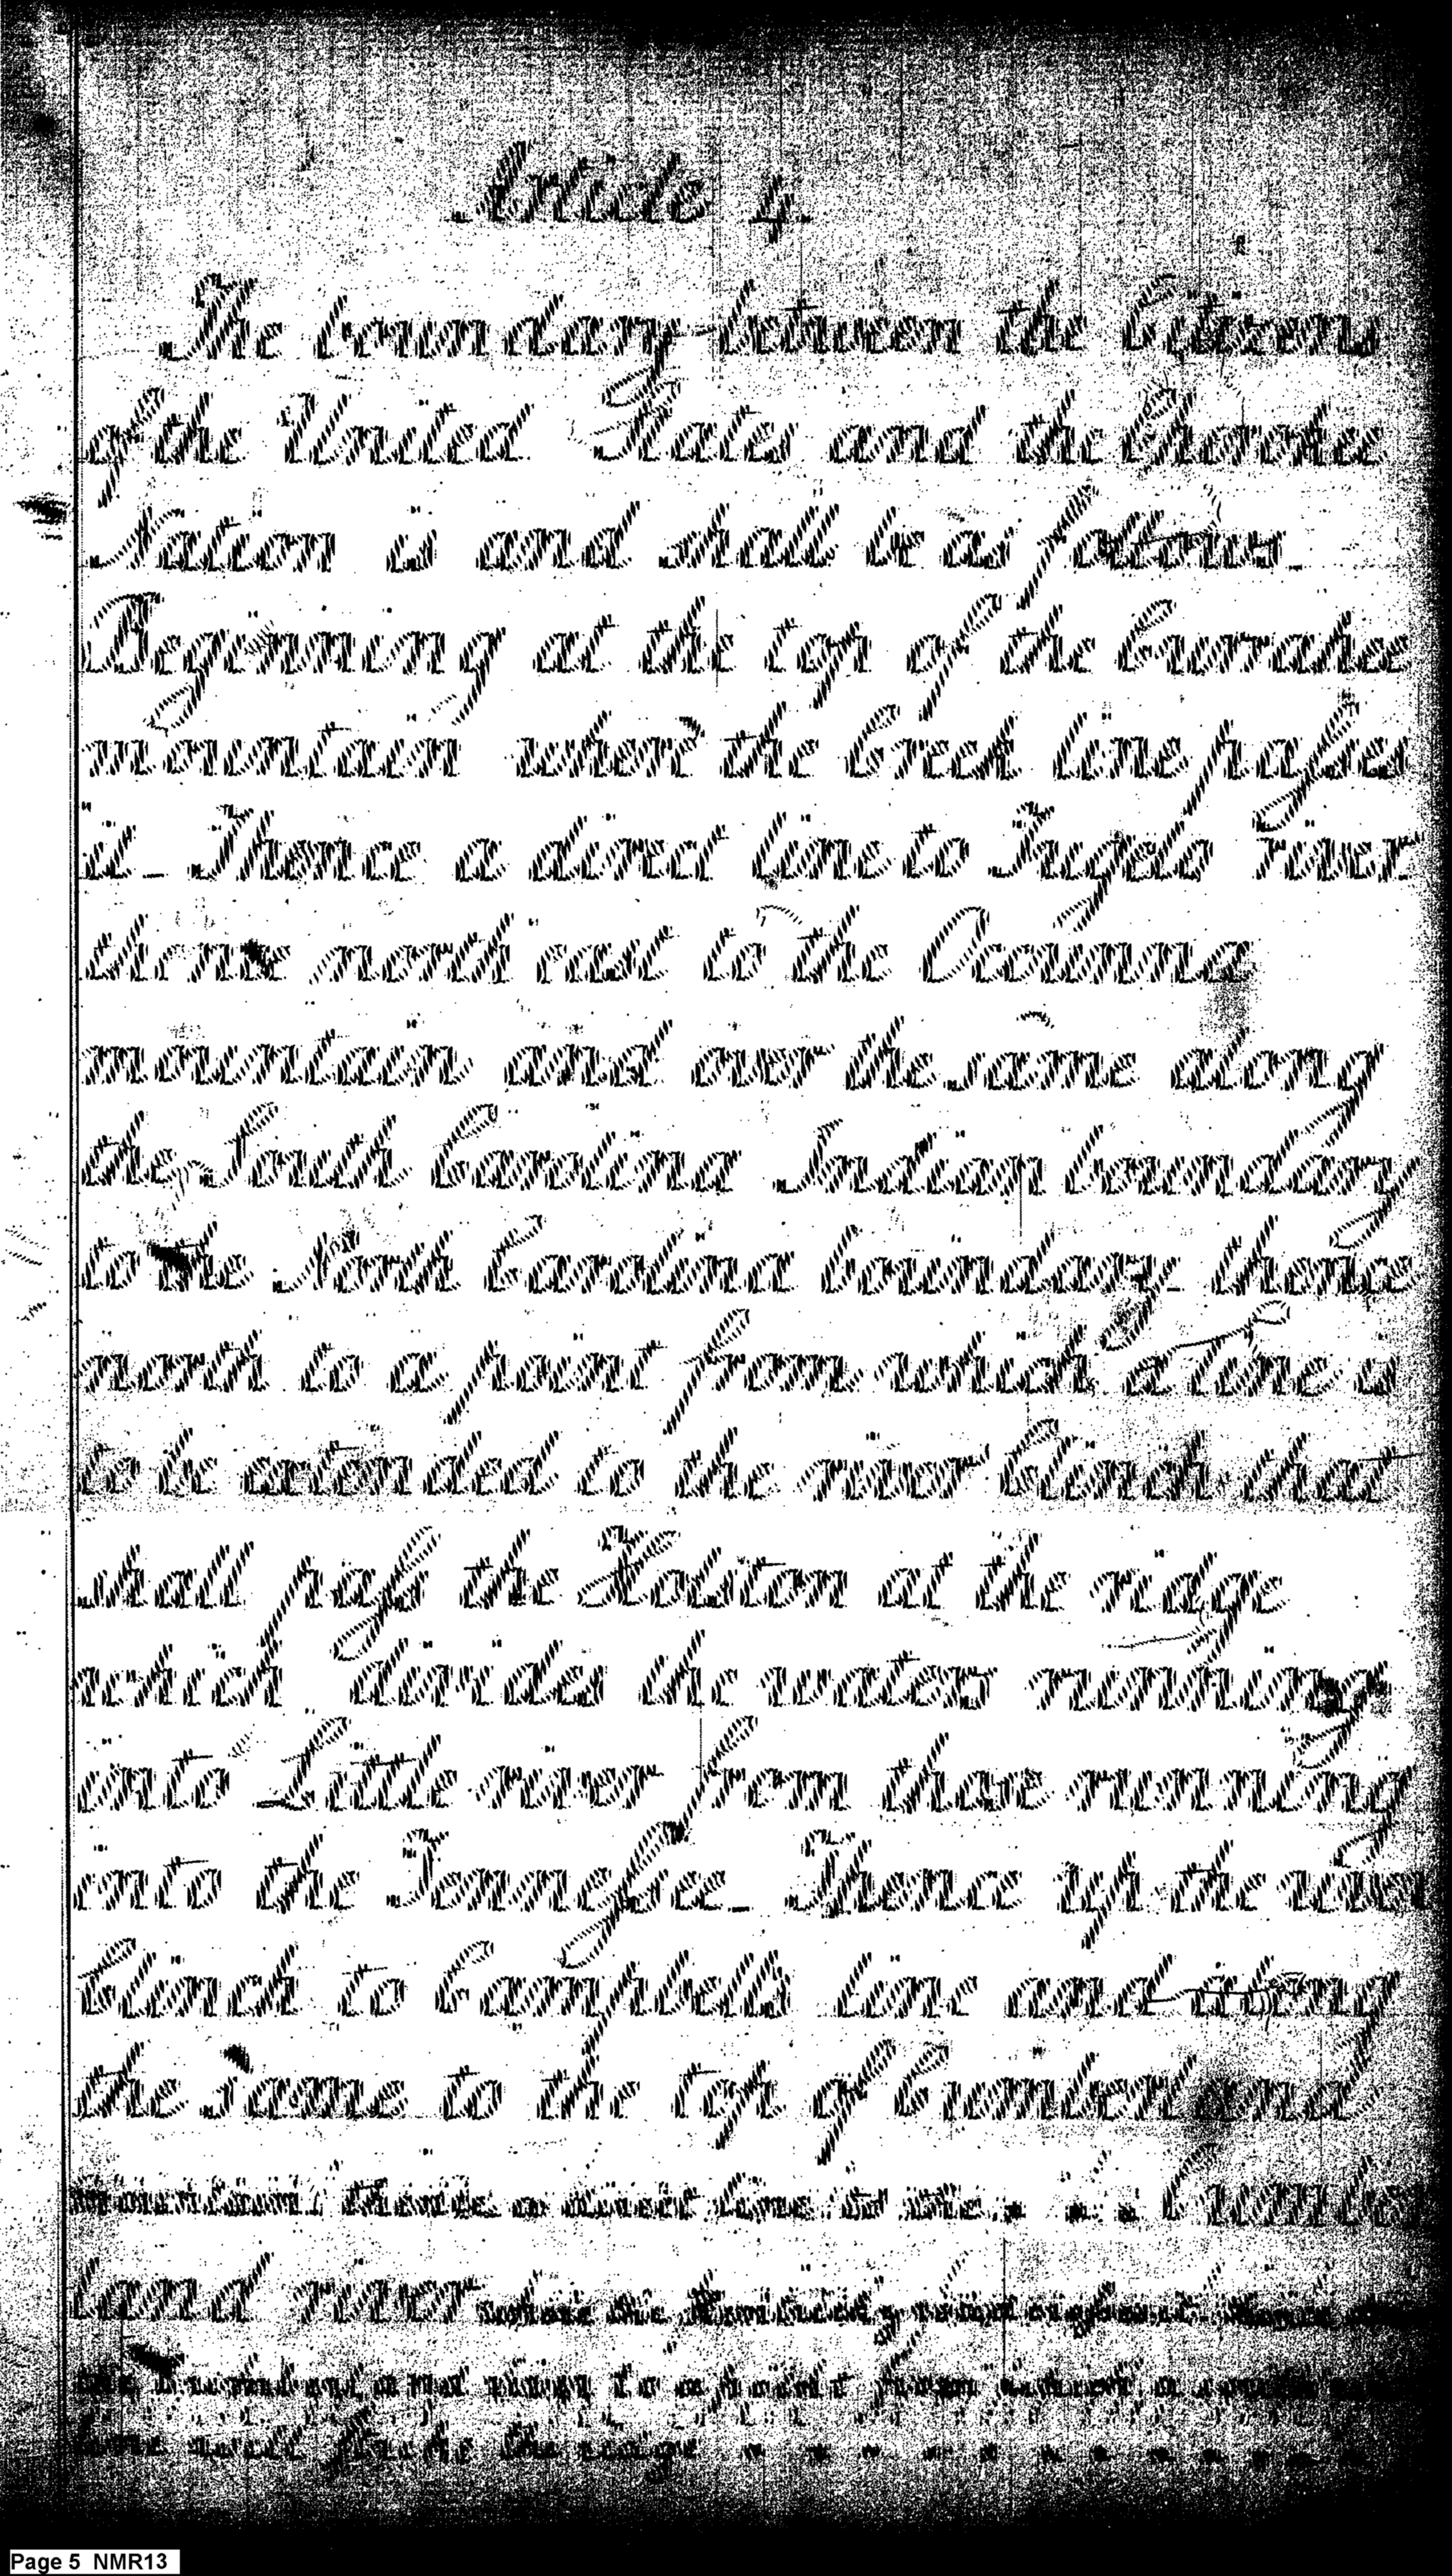 Article 4
The boundary between the Citizens
of the United States and the Cherokee
Nation is and shall be as follows
Beginning at the top of the Currahee
mountain where the Creek line passes
it _ Thence a direct line to Tugelo river
thence north east to the Occunna
mountain and over the same along
the South Carolina Indian boundary
to the North Carolina boundary _ thence
north to a point from which a line is
to be extended to the river Clinch that
shall pass the Holston at the ridge
which divides the waters running
into Little river from those running
into the Tennessee _ Thence up the river
Clinch to Campbells line and along
the same to the top of Cumberland
mountain, thence a direct line to the Cumber
land river where the Kentucky road crosses it
the Cumberland river to a point from which a south west
line will strike the ridge
Page 5 NMR13